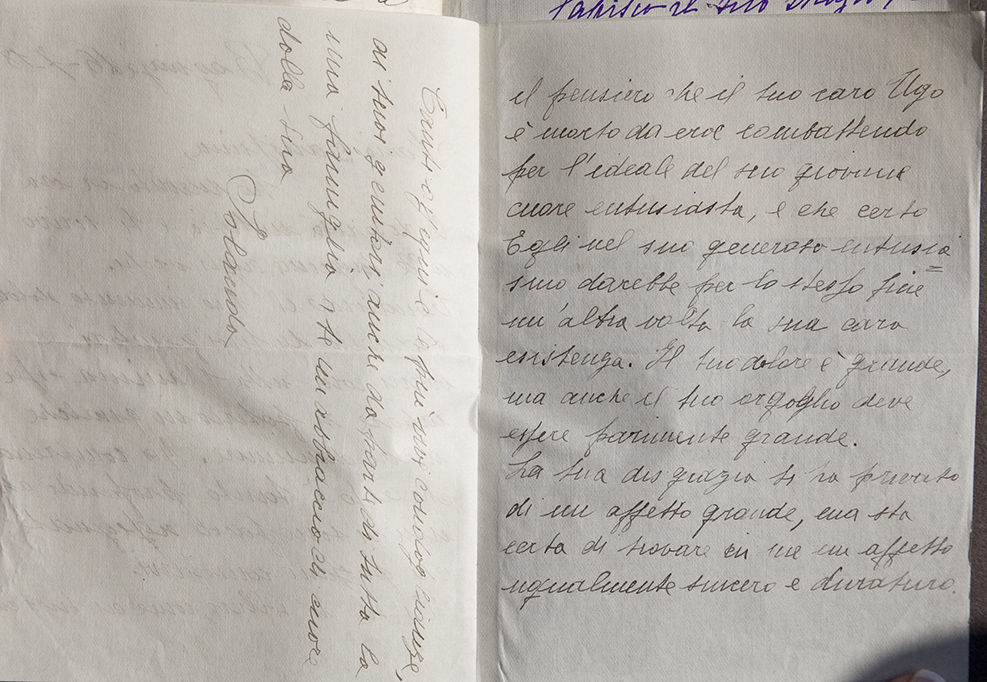 Capisco il tuo
il pensiero che il tuo caro Ugo
è morto da eroe combattendo
per l'ideale del suo giovine
cuore entusiasta, e che certo
Egli nel suo generoso entusia=
smo darebbe per lo stesso fine
un'altra volta la sua cara
esistenza. Il tuo dolore è grande,
ma anche il tuo orgoglio deve
essere parimente grande.
La tua disgrazia ti ha privato
di un affetto grande, ma sta
certa di trovare in me un affetto
ugualmente sincero e duraturo.
Tanti ossequi e le più vive condoglianze,
ai tuoi genitori, anche da parte di tutta la
mia famiglia a te un abbraccio di cuore
dalla tua
Iolanda